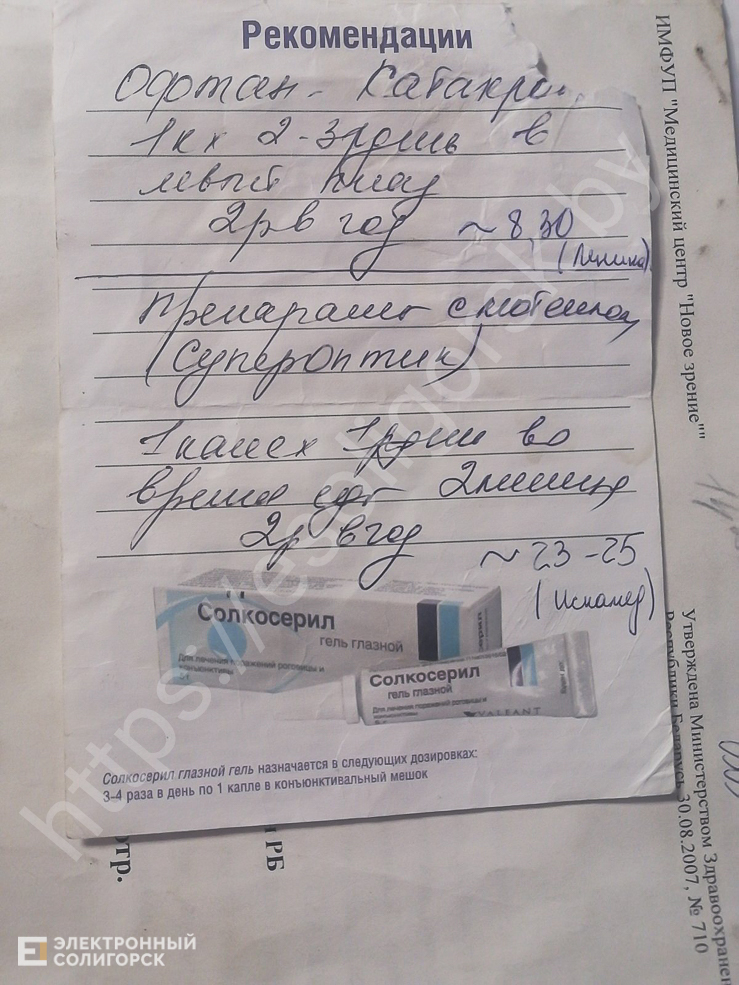 Рекомендации
Офтан - Катахром
1 к х 2-3 р день в
левый глаз
2 р в год ~ 8,30
(Леника)
Препараты с лютеином
(Супероптик)
1 капс х 1 р день во
время еды 2 месяца
2 р в год ~ 23-25
(Искамед)
Солкосерил
гель глазной
Для лечения поражений роговицы и
конъюнктивы
Солкосерил
гель глазной
Для лечения поражений роговицы и
конъюнктивы
VALEANT
Солкосерил глазной гель назначается в следующих дозировках:
3-4 раза в день по 1 капле в конъюнктивальный мешок
ИМФУП "Медицинский центр "Новое зрение""
Утверждена Министерством Здравоохранен
Республики Беларусь 30.08.2007, № 710
РБ
отр.
ЭЛЕКТРОННЫЙ
СОЛИГОРСК